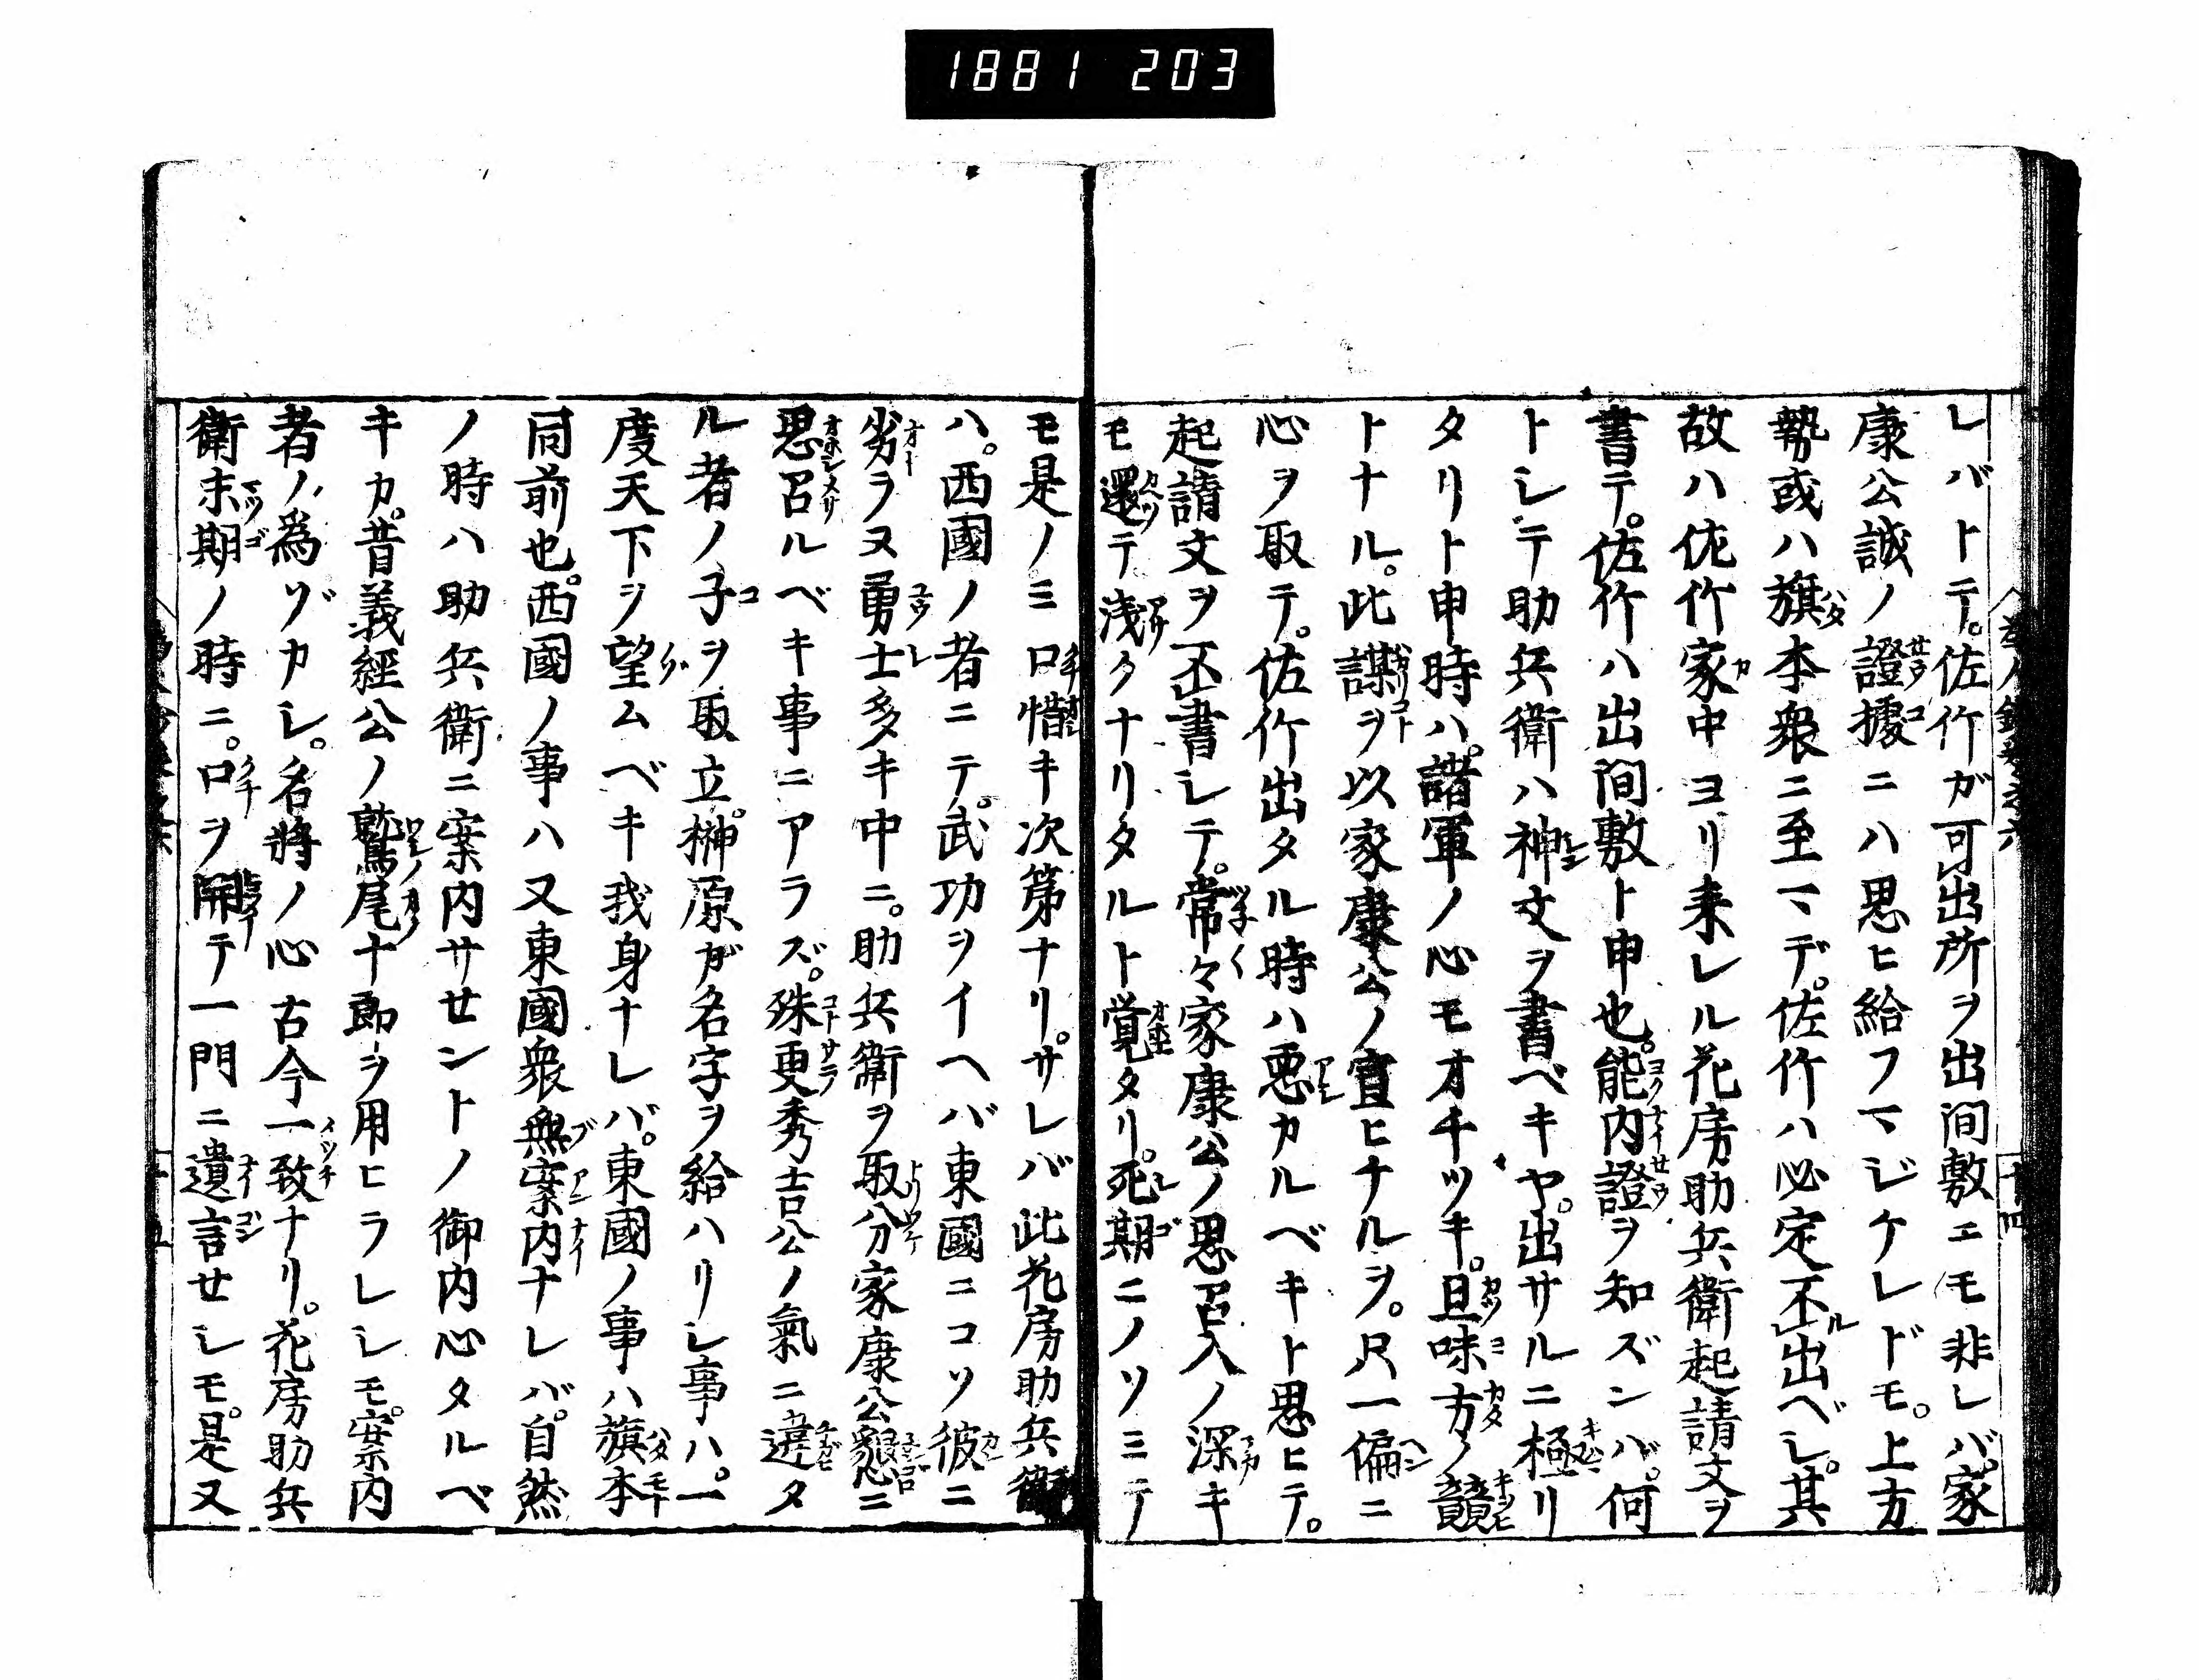 1881 203
レバトテ。佐竹ガ可出所ヲ出間敷エモ非レバ。家
康公誠ノ證據ニハ思ヒ給フマジケレドモ。上方
勢或ハ旗本衆ニ至マデ。佐竹ハ必定不出ベシ。其
故ハ佐竹家中ヨリ来レル花房助兵衛起請文ヲ
書テ。佐竹ハ出間敷ト申也。能内證ヲ知ズンバ。何
トシテ助兵衛ハ神文ヲ書ベキヤ。出サルニ極リ
タリト申時ハ。諸軍ノ心モオチツキ。且味方ノ競
トナル。此謀ヲ以家康公ノ宣ヒナルヲ。尺一偏ニ
心ヲ取テ。佐竹出タル時ハ悪カルベキト思ヒテ。
起請文ヲ不書シテ。常々家康公ノ思召入ノ深キ
モ還テ浅クナリタルト覚タリ。死期ニノソミテ
モ是ノミ口惜キ次第ナリ。サレバ此花房助兵衛
ハ。西國ノ者ニテ。武功ヲイヘバ東國ニコソ彼ニ
劣ラヌ勇士多キ中ニ。助兵衛ヲ取分家康公懇ニ
思召ルベキ事ニアラズ。殊更秀吉公ノ氣ニ違タ
ル者ノ子ヲ取立。榊原ガ名字ヲ給ハリシ事ハ。一
度天下ヲ望ムベキ我身ナレバ。東國ノ事ハ旗本
同前也。西國ノ事ハ又東國衆無案内ナレバ。自然
ノ時ハ助兵衛ニ案内サセントノ御内心タルベ
キカ。昔義經公ノ鷲尾十郎ヲ用ヒラレシモ。案内
者ノ為ゾカシ。名將ノ心古今一致ナリ。花房助兵
衛末期ノ時ニ。口ヲ開テ一門ニ遺言セシモ。是又